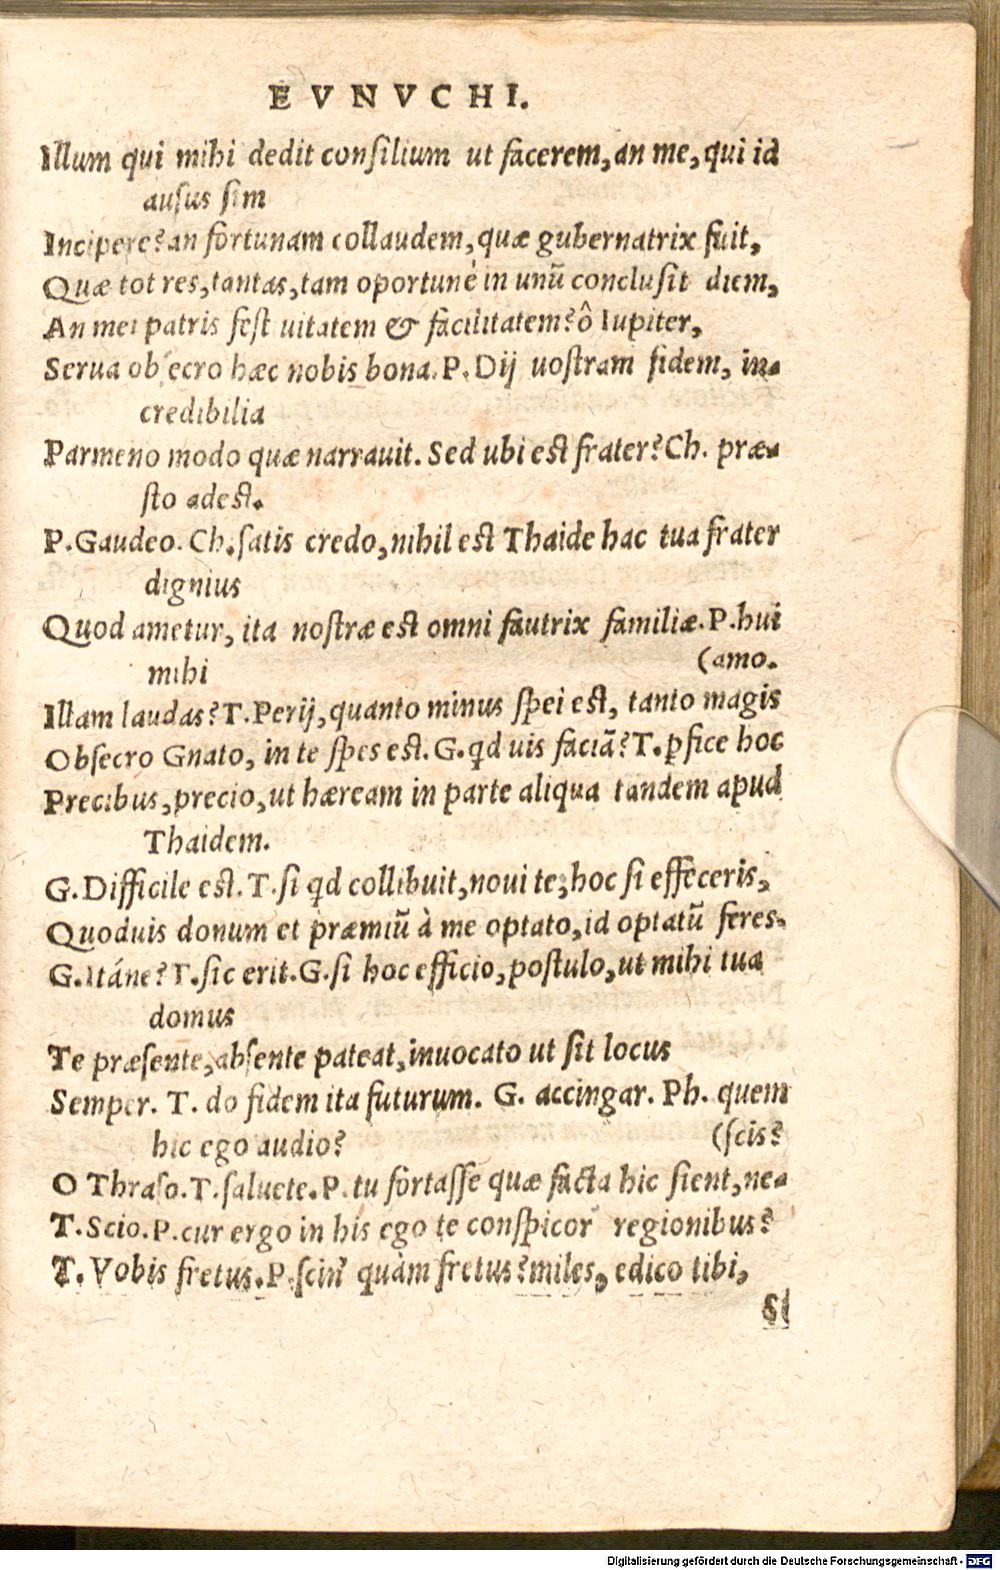 EVNVCHI.
Illum qui mihi dedit consilium ut facerem, an me, qui id
ausus sim
Incipere? an fortunam collaudem, quæ gubernatrix fuit,
Quæ tot res, tantas, tam oportunè in unũ conclusit diem,
An mei patris fest uitatem & facilitatem? ô Iupiter,
Serua obsecro hæc nobis bona. P. Dij uostram fidem, in-
credibilia
Parmeno modo quæ narrauit. Sed ubi est frater? Ch. præ-
sto adest.
P. Gaudeo. Ch. satis credo, nihil est Thaide hac tua frater
dignius
Quod ametur, ita nostræ est omni fautrix familiæ. P. hui
mihi (amo.
Illam laudas? T. Perij, quanto minus spei est, tanto magis
Obsecro Gnato, in te spes est. G. qd uis faciã? T. ꝑfice hoc
Precibus, precio, ut hæream in parte aliqua tandem apud
Thaidem.
G. Difficile est. T. si qd collibuit, noui te, hoc si effeceris,
Quoduis donum et præmiũ à me optato, id optatũ feres.
G. Itáne? T. sic erit. G. si hoc efficio, postulo, ut mihi tua
domus
Te præsente, absente pateat, inuocato ut sit locus
Semper. T. do fidem ita futurum. G. accingar. Ph. quem
hic ego audio? (scis?
O Thraso. T. saluete. P. tu fortasse quæ facta hic sient, ne-
T. Scio. P. cur ergo in his ego te conspicor regionibus?
T. Vobis fretus. P. scin' quàm fretus? miles, edico tibi,
Si
Digitalisierung gefördert durch die Deutsche Forschungsgemeinschaft - DFG